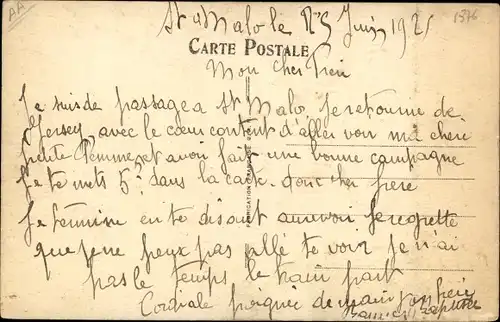 AA
1376
St Malo le 25 Juin 1921
CARTE POSTALE
Mon cher Frere
Je suis de passage a St Malo je retourne de
Jersey, avec le cœur content d'aller voir ma chere
petite Femme, et avoir fait une bonne campagne
Je te mets 5 dans la carte donc cher frere
Je termine en te disant aurevoir je regrette
que je ne peux pas allé te voir je n'ai
pas le temps le train part
Cordiale poignee de main ton frere
FABRICATION FRANÇAISE